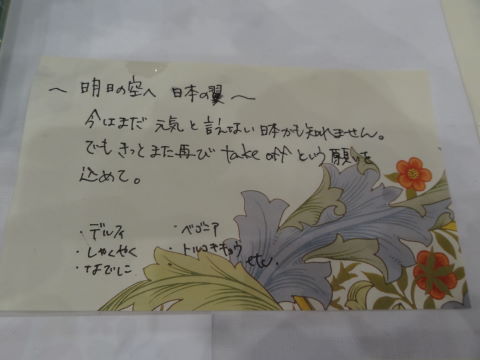 ～ 明日の空へ 日本の翼 ～
今はまだ 元気と言えない日本かも知れません。
でもきっとまた再び take off という願いを
込めて。
・デルフィ ・ベゴニア
・しゃくやく ・トルコキキョウ
・なでしこ etc.